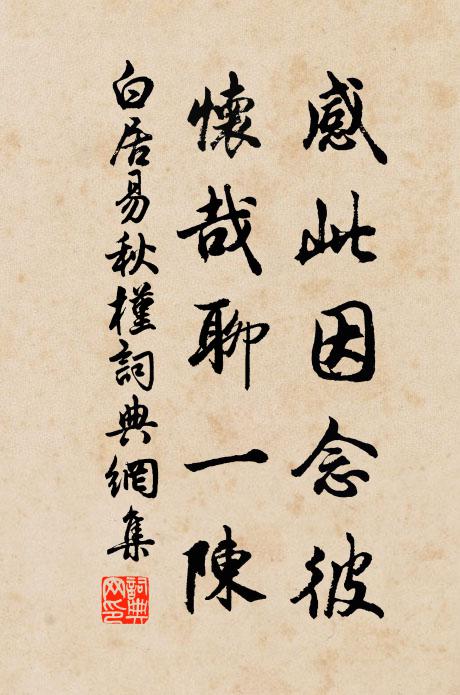 感此因念彼
懷哉聊一陳
白居易秋槿詞典網集
詞典網印